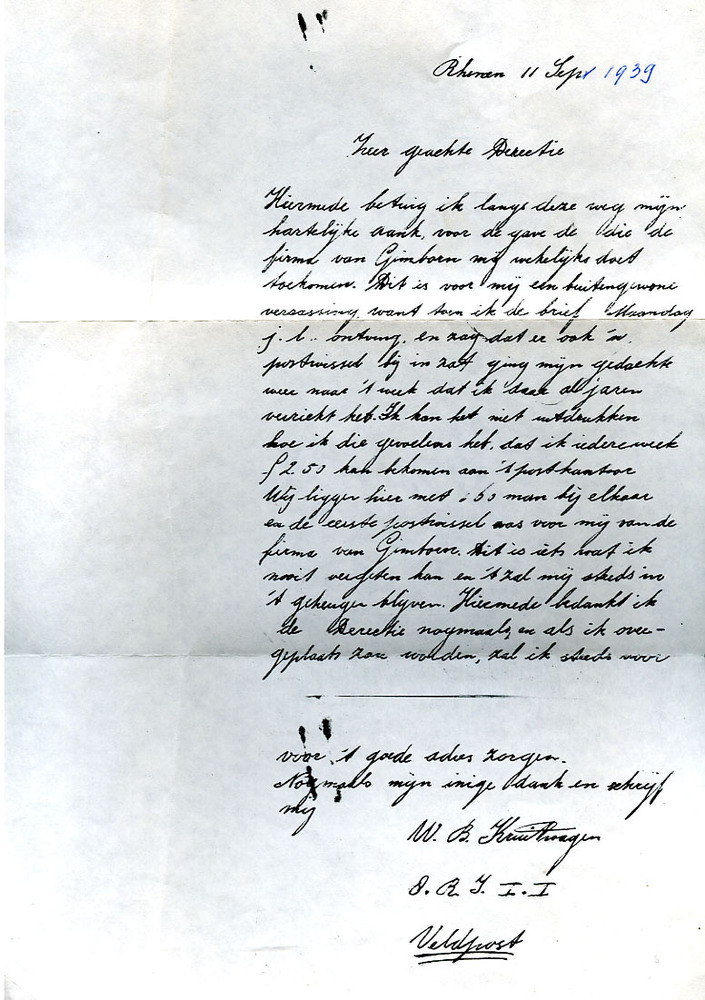 Rhenen 11 Sept 1939
Zeer geachte Derectie
Hiermede betuig ik langs deze weg mijn
hartelijke dank, voor de gave de die de
firma van Gimborn mij wekelijks doet
toekomen. Dit is voor mij een buitengewone
verassing, want toen ik de brief Maandag
j.l. ontving, en zag dat er ook 'n
postwissel bij in zat ging mijn gedachte
weer naar 't werk dat ik daar al jaren
verricht heb. Ik kan het niet uitdrukken
hoe ik die gevoelens heb, dat ik iedere week
f 2.50 kan bekomen aan 't postkantoor
Wij liggen hier met man bij elkaar
en de eerste postwissel was voor mij van de
firma van Gimborn. Dit is iets wat ik
nooit vergeten kan en 't zal mij steeds in
't geheugen blijven. Hiermede bedankt ik
de Derectie nogmaals, en als ik over-
geplaats zou worden, zal ik steeds voor
voor 't goede adres zorgen.
Nogmaals mijn inige dank en schrijf
mij
W. B. Kruitwagen
8. R. I. I-I
Veldpost